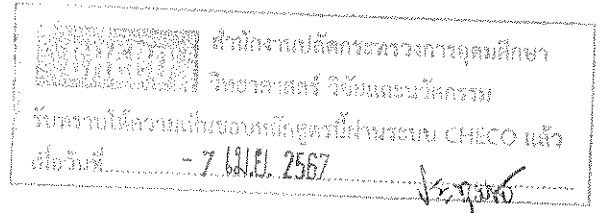 สำนักงานปลัดกระทรวงการอุดมศึกษา
วิทยาศาสตร์ วิจัยและนวัตกรรม
รับทราบให้ความเห็นชอบหลักสูตรนี้ผ่านระบบ CHECO แล้ว
เมื่อวันที่ - 7 เม.ย. 2567